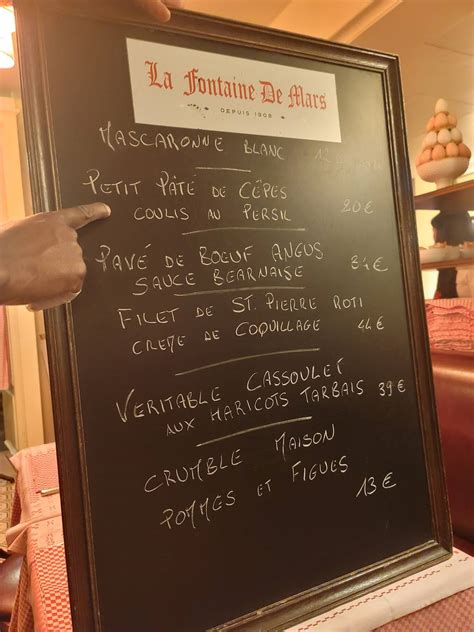 La Fontaine De Mars
DEPUIS 1908
MASCARONNE BLANC
PETIT PÂTÉ DE CÊPES
COULIS AU PERSIL 20€
PAVÉ DE BOEUF ANGUS
SAUCE BEARNAISE 34€
FILET DE ST. PIERRE ROTI
CREME DE COQUILLAGE 44€
VERITABLE CASSOULET
AUX HARICOTS TARBAIS 39€
CRUMBLE MAISON
POMMES ET FIGUES 13€